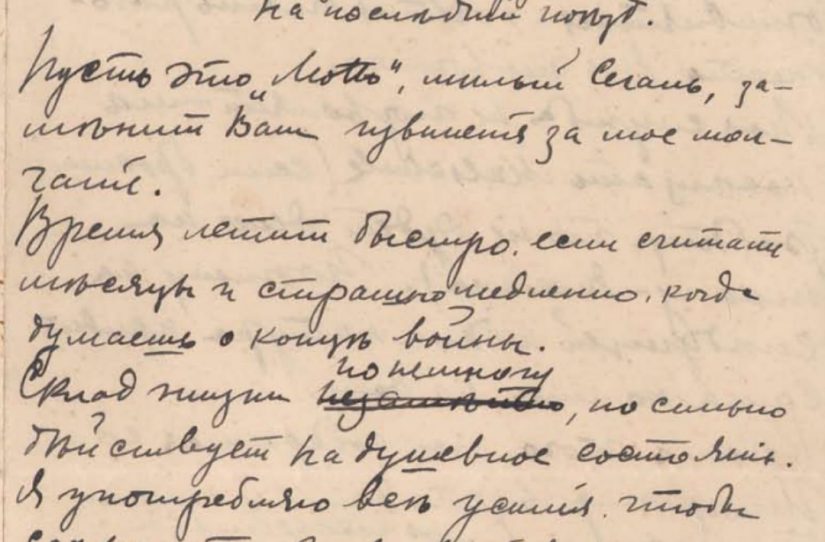 на послѣднiй
Пусть это „Motto“, милый Сегаль, за-
мѣнитъ Вамъ извиненiя за мое мол-
чанiе.
Время летитъ быстро, если считать
мѣсяцы и страшно медленно, когда
думаешь о концѣ войны.
понемногу
Складъ жизни незамѣтно, но сильно
дѣйствуетъ на душевное состоянiе.
Я употребляю всѣ усилiя, чтобы